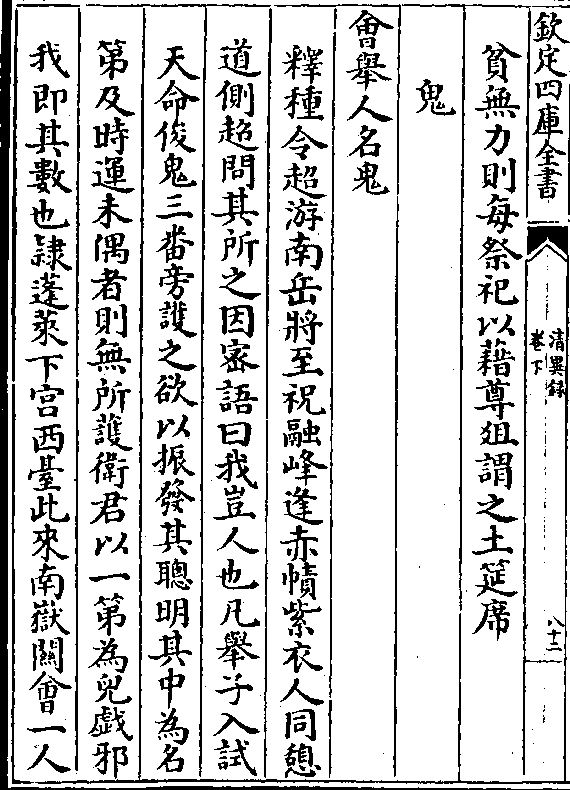 欽定四庫全書
清異録
卷下
八十二
貧無力則每祭祀以藉尊俎謂之土筵席
鬼
會舉人名鬼
釋種令超游南岳將至祝融峰逢赤幘紫衣人同憩
道側超問其所之因密語曰我豈人也凡舉子入試
天命俊鬼三番旁護之欲以振發其聰明其中為名
第及時運未偶者則無所護衛君以一第為兒戯邪
我即其數也隷蓬萊下宮西臺此來南嶽關會一人